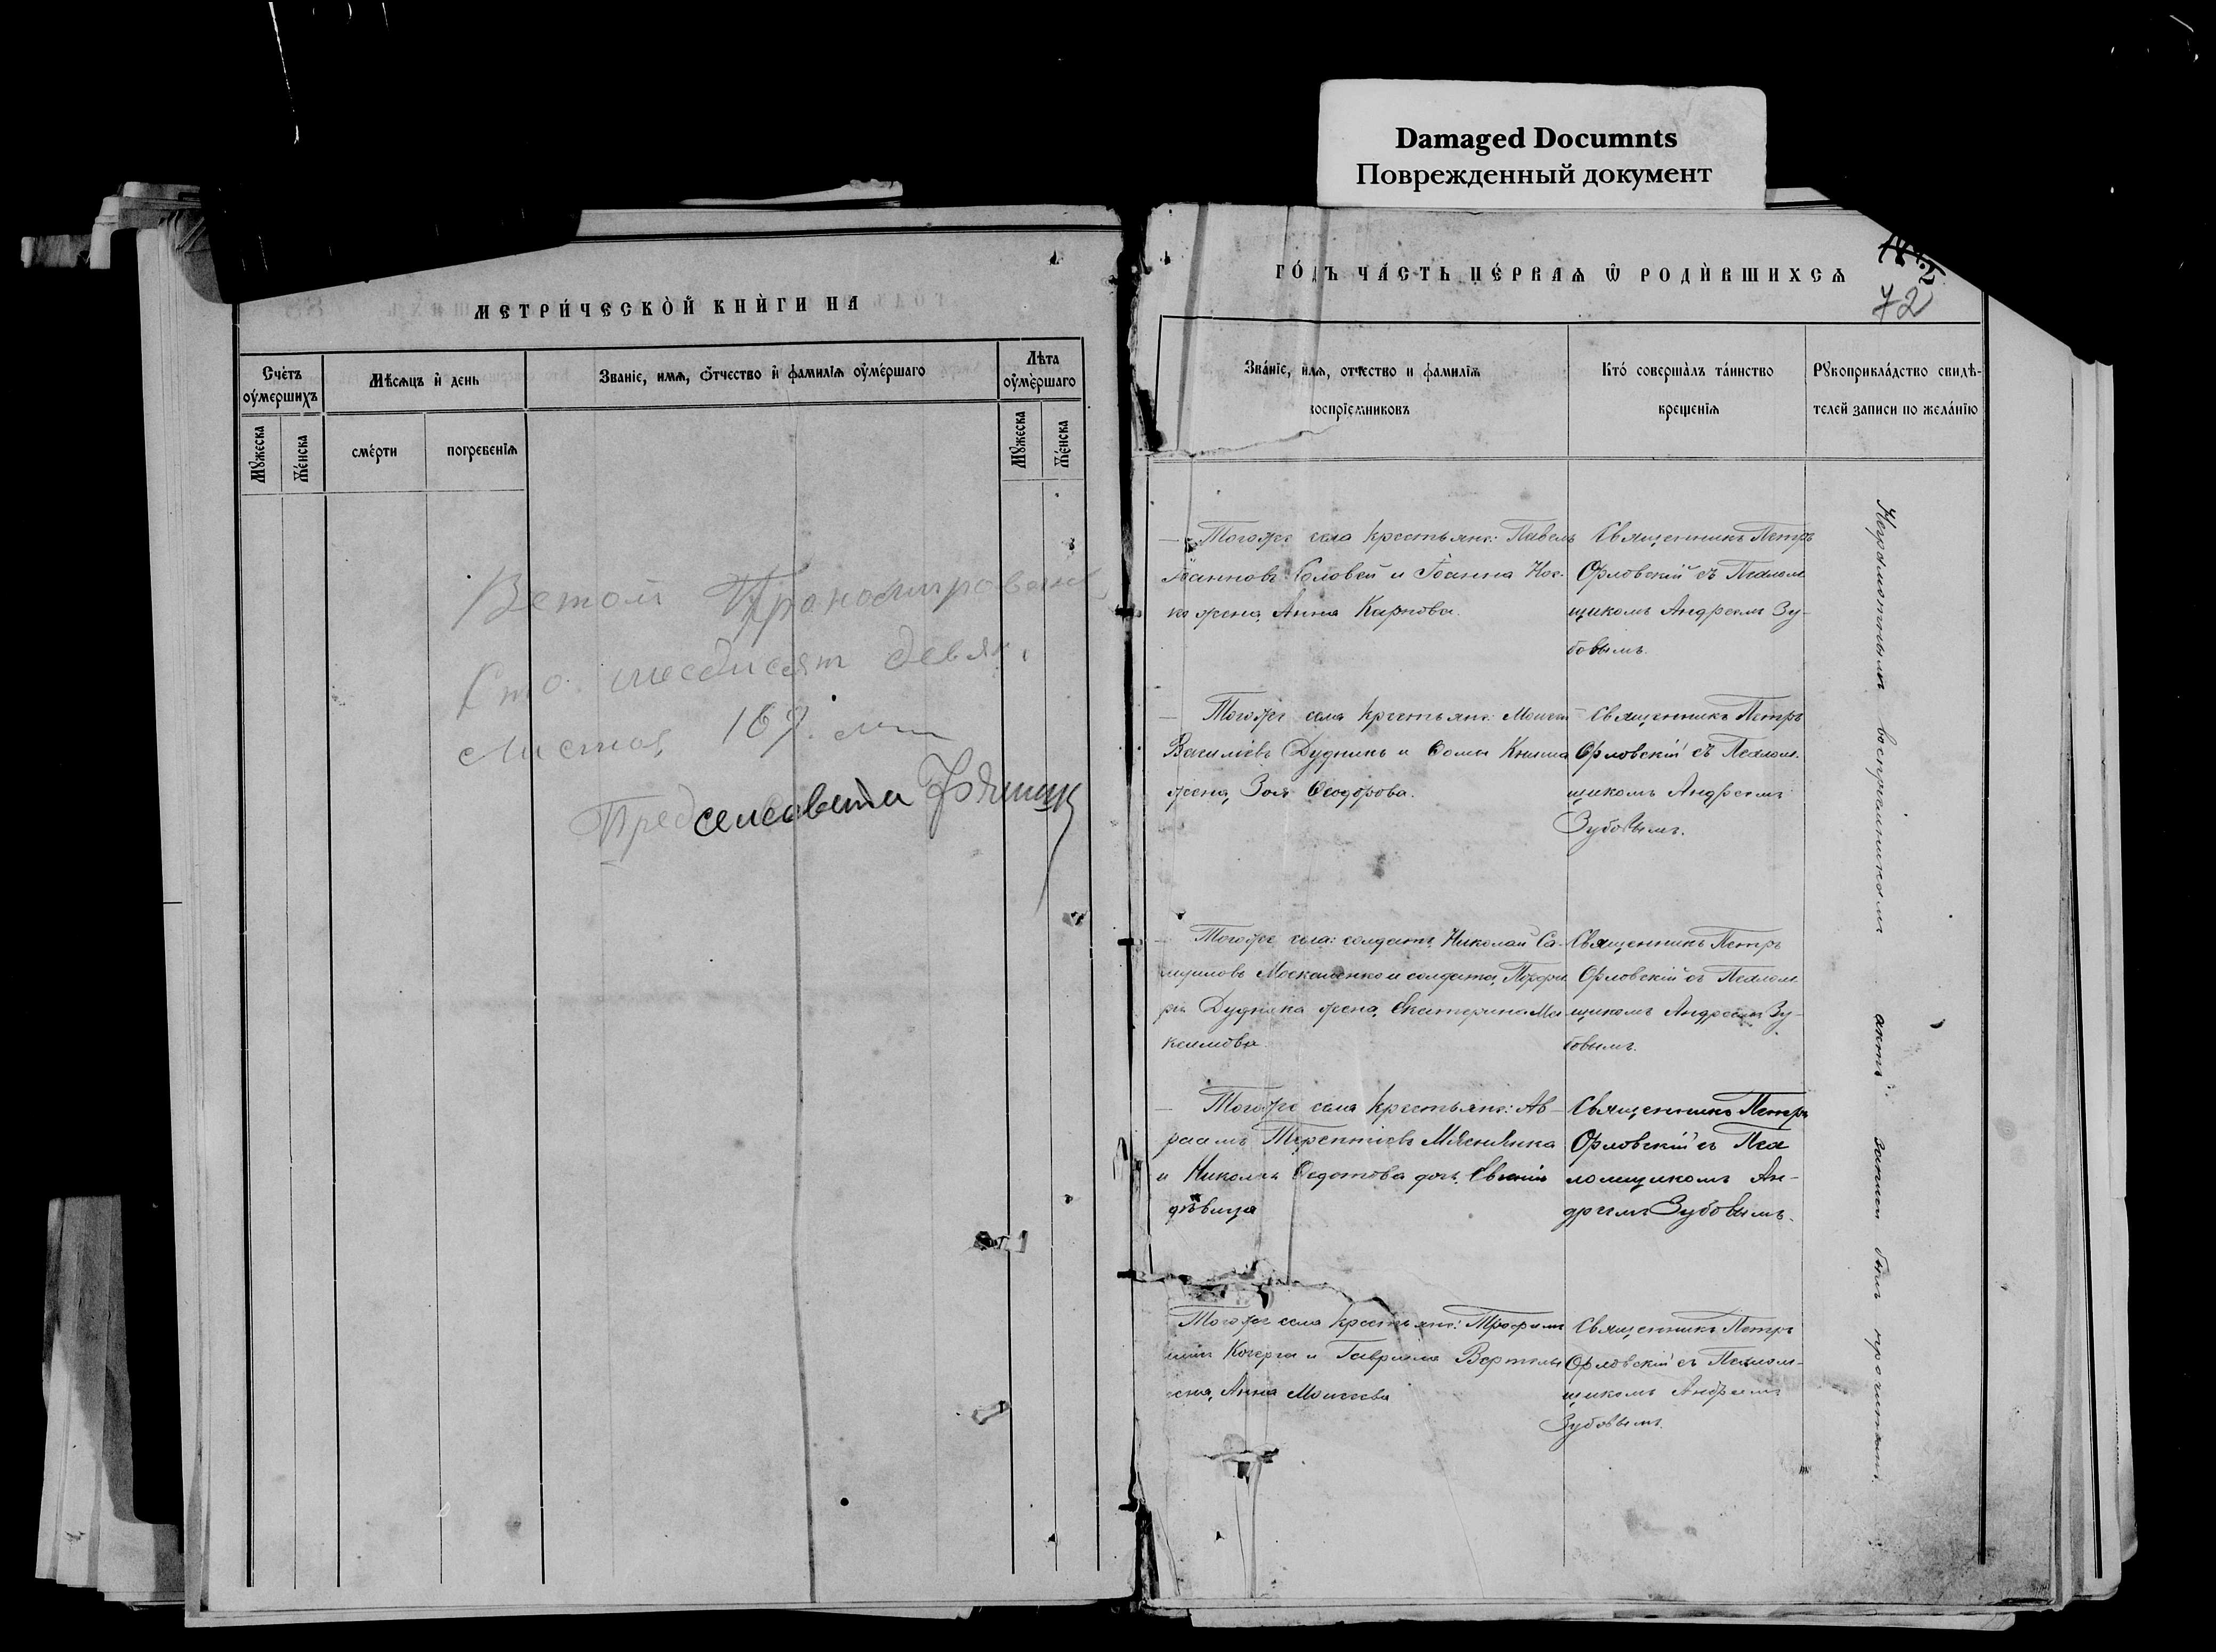 Damaged Documnts
Поврежденный документ
МЕТРИ́ЧЕСКО̀Й КНЍГИ НА
Сче́тъ оу́мершихъ
Мѣ́сѧцъ и҆ день
Званїе, имѧ, ѻ҆́тчество и҆ фамилїѧ оу҆ме́ршаго
Лѣта оу҆ме́ршаго
Мꙋжеска
Же́нска
сме́рти
погребенїѧ
Мꙋжеска
Же́нска
В етой
Сто шесдисят девят
листов 169.
Пред сельсовета
ГО́ДЪ ЧА́СТЬ ПЕ́РВАѦ Ѽ РОДЍВШИХСѦ
72
Зва́нїе, и́мѧ, отчество и фамилїѧ
воспрїемниковъ
Кто́ соверша̀лъ та́инство
крещенїѧ
Рꙋкоприкла́дство свидѣ-
телей записи по жела́нїю
Тогоже села крестьяне: Павелъ
Іоанновъ Соловей и Іоанна Нос-
ка жена, Анна Карпова.
Священникъ Петръ
Орловскій съ Псалом
щикомъ Андреемъ Зу-
бовымъ.
Тогоже села крестьяне: Моисей
Василіевъ Дудникъ и Ѳомы Книша
жена, Зоя Ѳеодорова.
Священникъ Петръ
Орловскій съ Псалом-
щикомъ Андреемъ
Зубовымъ.
Тогоже села: солдатъ Николай Са-
муиловъ Москаленко и солдата, Порфи
рія Дудника жена, Екатерина Ма
ксимова.
Священникъ Петръ
Орловскій съ Псалом-
щикомъ Андреемъ Зу-
бовымъ.
Тогоже села крестьяне: Ав-
раамъ Терентіевъ Мясника
и Николая Ѳедотова дочь, Евгенія
дѣвица
Священникъ Петръ
Орловскій съ Пса
ломщикомъ Ан-
дреемъ Зубовымъ.
Тогоже села крестьяне: Трофимъ
Кочерга и Гавріила
жена, Анна Моисеева
Священникъ Петръ
Орловскій съ Псалом-
щикомъ Андреемъ
Зубовымъ.
Неграмотнымъ воспріемникамъ актъ записи былъ прочитанъ.